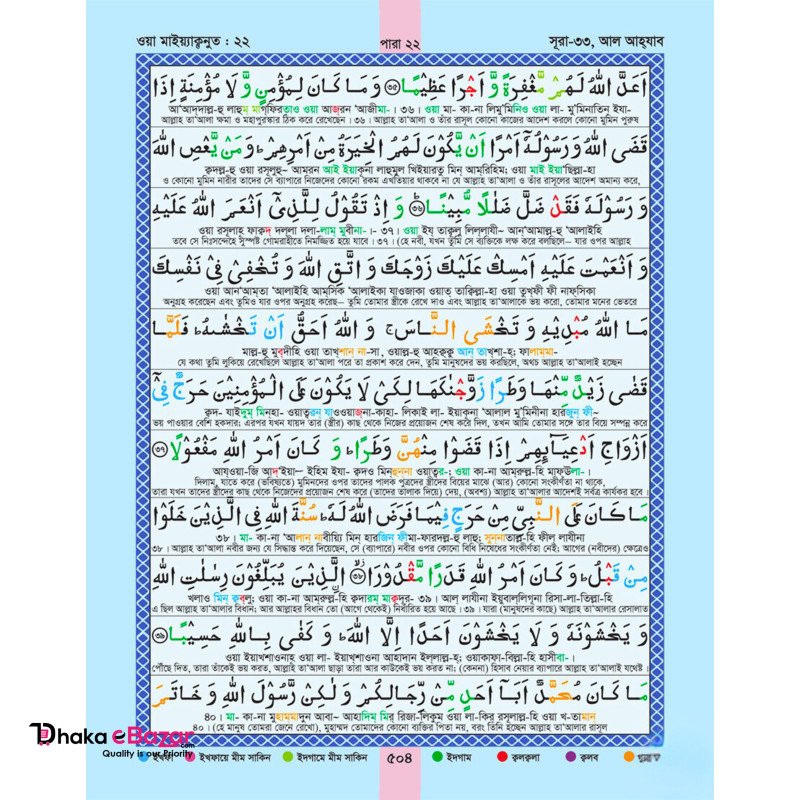 ওয়া মাইয়্যাক্বনুত : ২২ পারা ২২ সূরা-৩৩, আল আহ্‌যাব
اَعَدَّ اللّٰهُ لَهُمْ مَّغْفِرَةً وَّ اَجْرًا عَظِيْمًا ﴿۳۵﴾ وَ مَا كَانَ لِمُؤْمِنٍ وَّ لَا مُؤْمِنَةٍ اِذَا
আ'আদ্দাল্ল-হু লাহুম মাগফিরতাও ওয়া আজ্‌রন 'আজীমা- । ৩৬ । ওয়া মা- কা-না লিমু'মিনিও ওয়া লা- মু'মিনাতিন ইযা-
আল্লাহ তা'আলা ক্ষমা ও মহাপুরস্কার ঠিক করে রেখেছেন । ৩৬ । আল্লাহ তা'আলা ও তাঁর রাসূল কোনো কাজের আদেশ করলে কোনো মুমিন পুরুষ
قَضَى اللّٰهُ وَرَسُوْلُهٗۤ اَمْرًا اَنْ يَّكُوْنَ لَهُمُ الْخِيَرَةُ مِنْ اَمْرِهِمْ ؕ وَمَنْ يَّعْصِ اللّٰهَ
ক্বদল্ল-হু ওয়া রসূলুহূ~ আমরন আই ইয়াকূনা লাহুমুল খিইয়ারতু মিন্ আমরিহিম; ওয়া মাই ইয়া'ছিল্লা-হা
ও কোনো মুমিন নারীর তাদের সে ব্যাপারে নিজেদের কোনো রকম এখতিয়ার থাকবে না যে আল্লাহ তা'আলা ও তাঁর রাসূলের আদেশ অমান্য করে,
وَ رَسُوْلَهٗ فَقَدْ ضَلَّ ضَلٰلًا مُّبِيْنًا ﴿۳۶﴾ وَ اِذْ تَقُوْلُ لِلَّذِيْۤ اَنْعَمَ اللّٰهُ عَلَيْهِ
ওয়া রসূলাহূ ফাক্বদ্ দল্লা দলা-লাম্ মুবীনা- । ৩৭ । ওয়া ইয্ তাকূলু লিল্লাযী~ আন্'আমাল্ল-হু 'আলাইহি
তবে সে নিঃসন্দেহে সুস্পষ্ট গোমরাহীতে নিমজ্জিত হয়ে যাবে । ৩৭ । (হে নবী, যখন তুমি সে ব্যক্তিকে লক্ষ করে বলছিলে– যার ওপর আল্লাহ
وَ اَنْعَمْتَ عَلَيْهِ اَمْسِكْ عَلَيْكَ زَوْجَكَ وَ اتَّقِ اللّٰهَ وَ تُخْفِيْ فِيْ نَفْسِكَ
ওয়া আন'আম্‌তা 'আলাইহি আম্‌সিক 'আলাইকা যাওজাকা ওয়াত্ তাক্বিল্লা-হা ওয়া তুখ্‌ফী ফী নাফ্‌সিকা
অনুগ্রহ করেছেন এবং তুমিও যার ওপর অনুগ্রহ করেছ– তুমি তোমার স্ত্রীকে রেখে দাও এবং আল্লাহ তা'আলাকে ভয় করো, তোমার মনের ভেতরে
مَا اللّٰهُ مُبْدِيْهِ وَ تَخْشَى النَّاسَ ۚ وَ اللّٰهُ اَحَقُّ اَنْ تَخْشٰىهُ ؕ فَلَمَّا
মাল্ল-হু মুব্‌দীহি ওয়া তাখ্‌শান্ না-সা, ওয়াল্ল-হু আহক্বকু আন্ তাখ্‌শা-হ; ফালাম্মা-
যে কথা তুমি লুকিয়ে রেখেছিলে আল্লাহ তা'আলা পরে তা প্রকাশ করে দেন, তুমি মানুষদের ভয় করছিলে, অথচ আল্লাহ তা'আলাই হচ্ছেন
قَضٰى زَيْدٌ مِّنْهَا وَطَرًا زَوَّجْنٰكَهَا لِكَيْ لَا يَكُوْنَ عَلَى الْمُؤْمِنِيْنَ حَرَجٌ فِيْۤ
ক্বদ- যাইদুম্ মিন্‌হা- ওয়াত্বরন্ যাওওয়াজ্‌না-কাহা- লিকাই লা- ইয়াকূনা 'আলাল মু'মিনীনা হারজুন্ ফী~
ভয় পাওয়ার বেশি হকদার; এরপর যখন যায়দ তার (স্ত্রীর) কাছ থেকে নিজের প্রয়োজন শেষ করে দিল, তখন আমি তোমার সঙ্গে তার বিয়ে সম্পন্ন করে
اَزْوَاجِ اَدْعِيَآئِهِمْ اِذَا قَضَوْا مِنْهُنَّ وَطَرًا ؕ وَ كَانَ اَمْرُ اللّٰهِ مَفْعُوْلًا ﴿۳۷﴾
আয্‌ওয়া-জি আদ্'ইয়া~ ইহিম ইযা- ক্বদও মিন্‌হুন্না ওয়াত্বর-; ওয়া কা-না আম্‌রুল্ল-হি মাফ্'উলা- ।
দিলাম, যাতে করে (ভবিষ্যতে) মুমিনদের ওপর তাদের পালক পুত্রদের স্ত্রীদের বিয়ের মাঝে (আর) কোনো সংকীর্ণতা না থাকে,
তারা যখন তাদের স্ত্রীদের কাছ থেকে নিজেদের প্রয়োজন শেষ করে (তাদের তালাক দিয়ে) দেয়, (অবশ্য) আল্লাহ তা'আলার আদেশই সর্বত্র কার্যকর হবে ।
مَا كَانَ عَلَى النَّبِيِّ مِنْ حَرَجٍ فِيْمَا فَرَضَ اللّٰهُ لَهٗ ؕ سُنَّةَ اللّٰهِ فِي الَّذِيْنَ خَلَوْا
৩৮ । মা- কা-না 'আলান্ নাবীয়্যি মিন্ হারজিন্ ফীমা-ফারদল্ল-হু লাহূ; সুন্নাতাল্ল-হি ফীল্ লাযীনা
৩৮ । আল্লাহ তা'আলা নবীর জন্য যে সিদ্ধান্ত করে দিয়েছেন, সে (ব্যাপারে) নবীর ওপর কোনো বিধি নিষেধের সংকীর্ণতা নেই; আগের (নবীদের) ক্ষেত্রেও
مِنْ قَبْلُ ؕ وَ كَانَ اَمْرُ اللّٰهِ قَدَرًا مَّقْدُوْرَا ﴿۳۸﴾ الَّذِيْنَ يُبَلِّغُوْنَ رِسٰلٰتِ اللّٰهِ
খলাও মিন্ ক্ববলু; ওয়া কা-না আম্‌রুল্ল-হি ক্বদারম্ মাক্বদূর- ৩৯ । আল্ লাযীনা ইয়ুবাল্লিগূনা রিসা-লা-তিল্লা-হি
এ ছিল আল্লাহ তা'আলার বিধান; আর আল্লাহর বিধান তো (আগে থেকেই) নির্ধারিত হয়ে আছে । ৩৯ । যারা (মানুষদের কাছে) আল্লাহ তা'আলার রেসালাত
وَ يَخْشَوْنَهٗ وَ لَا يَخْشَوْنَ اَحَدًا اِلَّا اللّٰهَ ؕ وَ كَفٰى بِاللّٰهِ حَسِيْبًا ﴿۳۹﴾
ওয়া ইয়াখ্‌শাওনাহূ ওয়া লা- ইয়াখ্‌শাওনা আহাদান ইল্লাল্ল-হ্; ওয়াকাফা-বিল্লা-হি হাসীবা- ।
পৌঁছে দিত, তারা তাঁকেই ভয় করত, আল্লাহ তা'আলা ছাড়া তারা আর কাউকেই ভয় করত না; (কেননা) হিসাব নেবার ব্যাপারে আল্লাহ তা'আলাই যথেষ্ট ।
مَا كَانَ مُحَمَّدٌ اَبَاۤ اَحَدٍ مِّنْ رِّجَالِكُمْ وَ لٰكِنْ رَّسُوْلَ اللّٰهِ وَ خَاتَمَ
৪০ । মা- কা-না মুহাম্মাদুন আবা~ আহাদিম্ মির্ রিজা-লিকুম ওয়া লা-কির্ রসূলাল্ল-হি ওয়া খ-তামান্
৪০ । (হে মানুষ তোমরা জেনে রেখো), মুহাম্মদ তোমাদের কোনো ব্যক্তির পিতা নয়, বরং তিনি হচ্ছেন আল্লাহ তা'আলার রাসূল
Dhaka eBazar.com
Quality is our Priority
ইখফা ইখফায়ে মীম সাকিন ইদগামে মীম সাকিন ৫০৪ ইদগাম ক্বলক্বলা ক্বলব গুন্নাহ